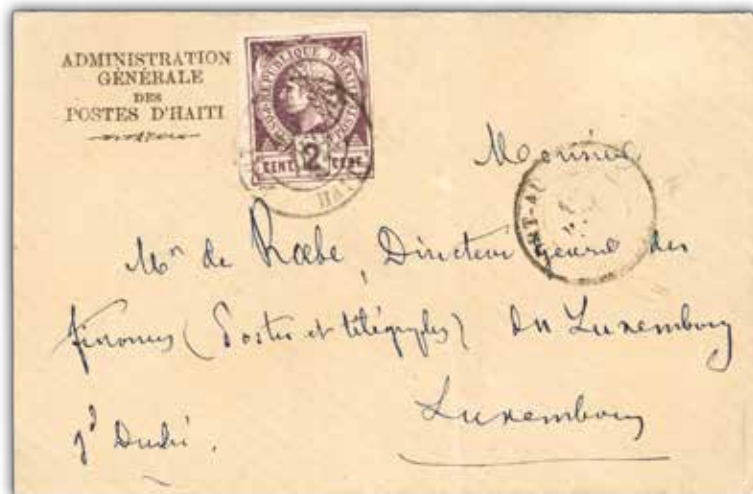 ADMINISTRATION
GÉNÉRALE
DES
POSTES D'HAITI
REPUBLIQUE D'HAITI
POSTE
CENT 2 CENT
HAI
Monsieur
RT-AU
Mr de Roebe, Directeur Génral des
finances (Postes et télégraphes) du Luxembourg
Luxembourg
gd Duché.